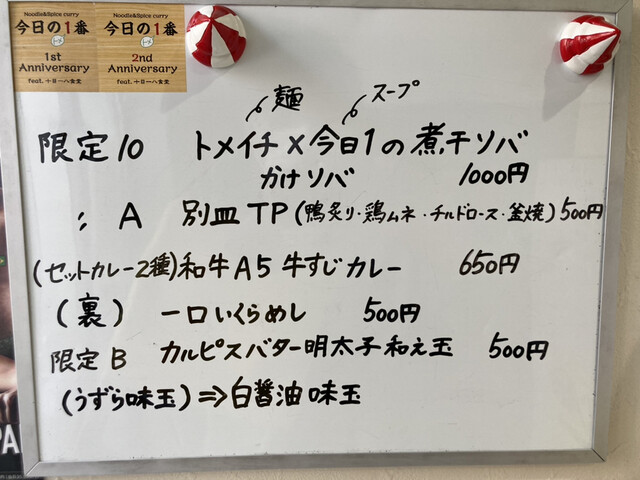 Noodle&Spice curry
今日の1番
1st
Anniversary
feat. 十日一八食堂
Noodle&Spice curry
今日の1番
2nd
Anniversary
feat. 十日一八食堂
麺 スープ
限定10 トメイチ×今日1の煮干ソバ
かけソバ 1000円
〃 A 別皿TP(鴨炙り・鶏ムネ・チルドロース・釜焼)500円
(セットカレー2種)和牛A5牛すじカレー 650円
(裏) 一口いくらめし 500円
限定B カルピスバター明太子和え玉 500円
(うずら味玉)⇒白醤油味玉
PA